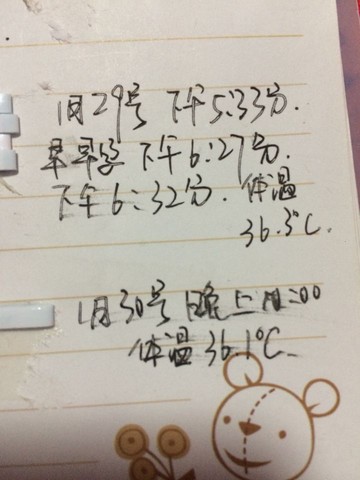 1月29号 下午5:33分.
早早孕 下午6:27分.
下午6:32分. 体温
36.3℃.
1月30号 晚上11:00
体温36.1℃.